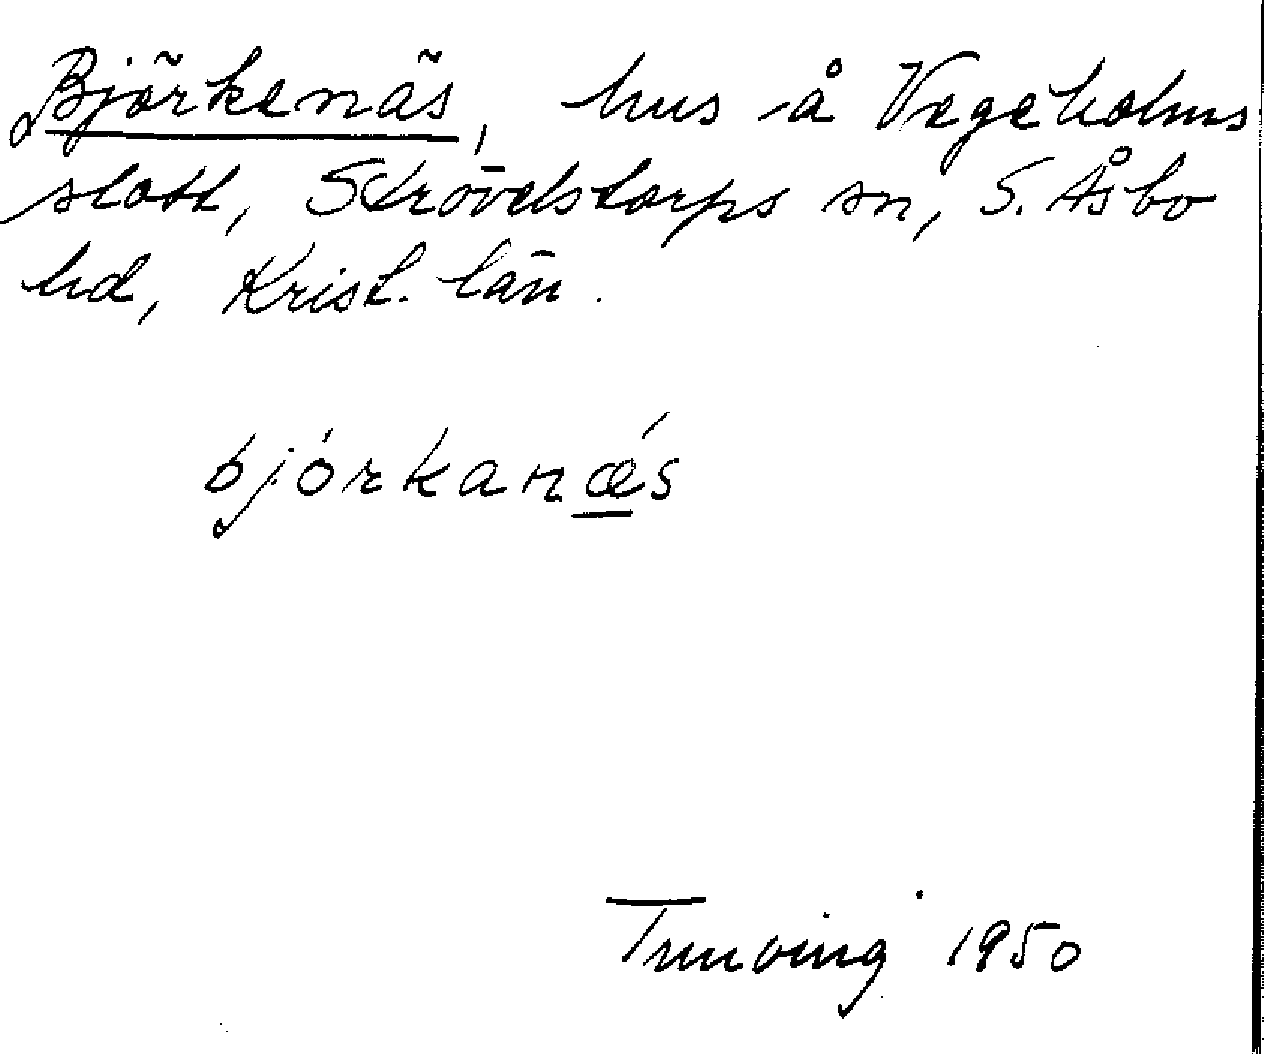 Björkenäs, hus å Vegeholms
slott, Strövelstorps sn, S. Åsbo
hd, Krist. län.
bjórkanǽs
1950